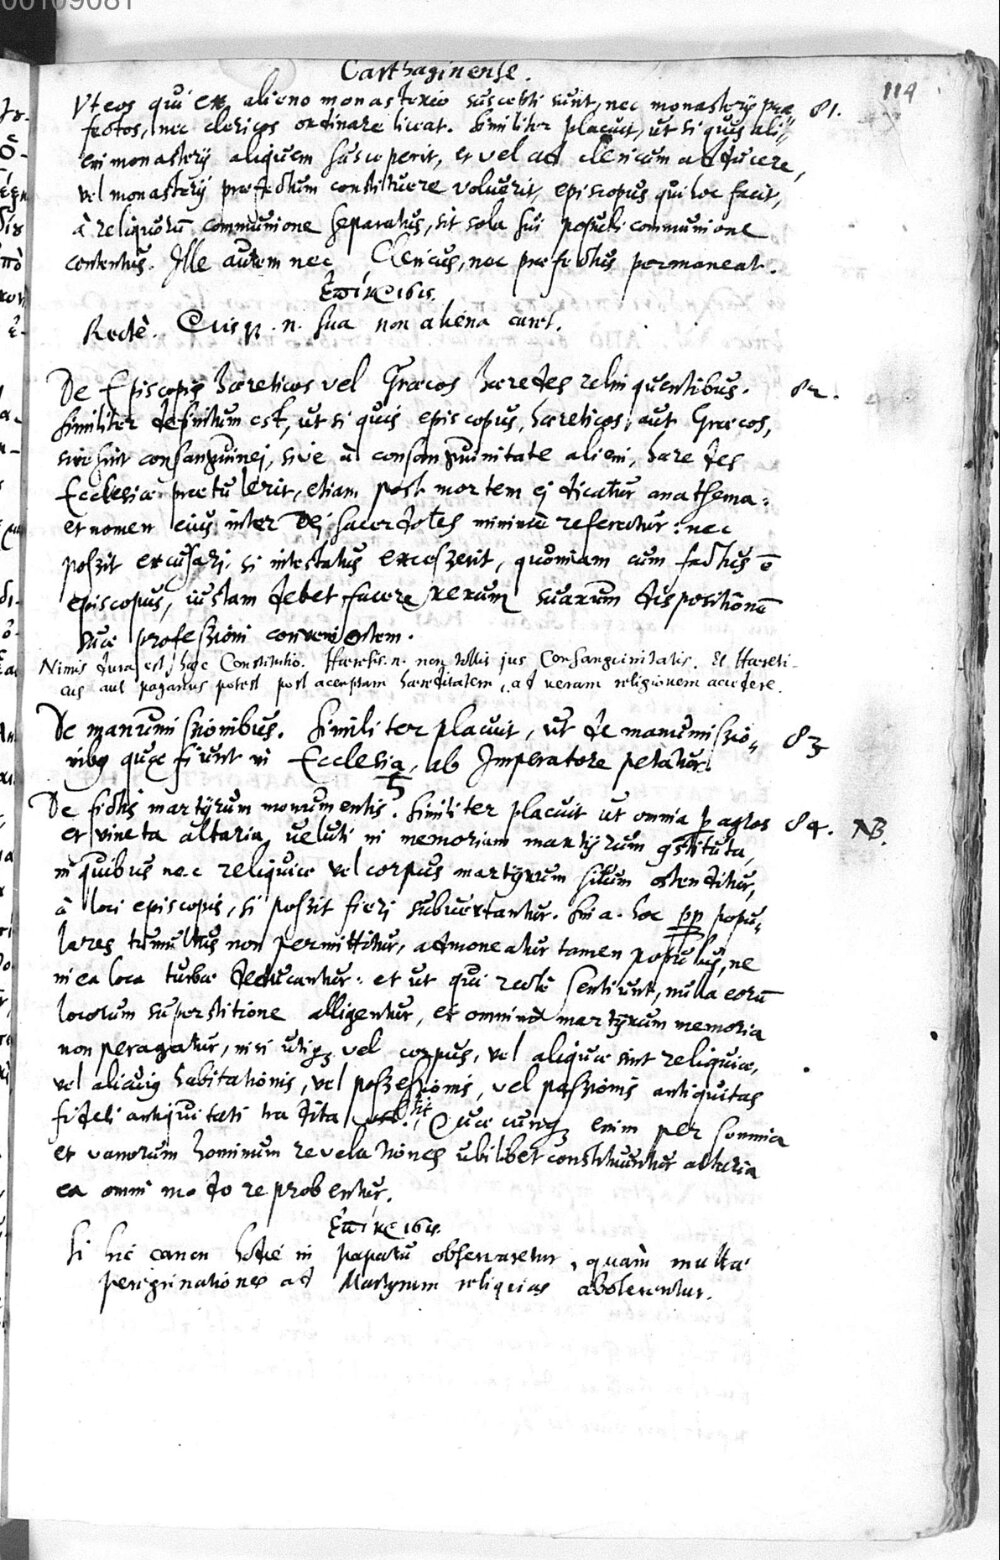 00109081
114
Carthaginense.
Vt eos qui ex alieno monasterio suscepti sunt, nec monasterij præ= 81.
fectos, nec clericos ordinare liceat. Similiter placuit, ut si quis ali=
eni monasterij aliquem susceperit, et vel ad clericum adducere,
vel monasterij præfectum constituere voluerit, episcopus qui hoc facit,
à reliquorū communione separatus, sit sola sui populi communione
contentus. Ille autem nec Clericus, nec præfectus permaneat.
Ἐπίκρισις
Rectè. Quisq. n. sua non aliena curet.
De Episcopis hæreticos vel Græcos hæredes relinquentibus. 82.
Similiter definitum est, ut si quis episcopus, hæreticos, aut Græcos,
sive sint consanguinej, sive à consanguinitate alieni, hæredes
Ecclesiæ prætulerit, etiam post mortem ej dicatur anathema:
et nomen eius inter Dej sacerdotes minimè referetur: nec
possit excusarj si intestatus excesserit, quoniam cum factus ē
episcopus, iustam debet facere rerum suarum dispositionē
suæ professioni convenientem.
Nimis dura est hæc Constitutio. Hæresis. n. non tollit jus Consanguinitatis. Et Hæreti-
cus aut paganus potest post acceptam hæreditatem, ad veram religionem accedere.
De manumissionibus. Similiter placuit, ut de manumissio= 83
nibg quæ fiunt in Ecclesia, ab Imperatore petatur.
De fictis martyrum monumentis. Similiter placuit ut omnia p agros 84. NB.
et vineta altaria, veluti in memoriam martyrum 9stituta,
in quibus nec reliquiæ vel corpus martyrum situm ostenditur,
à loci episcopis, si possit fierj subvertantur. Sin a. hoc pp popu=
lares tumultus non permittitur, admoneatur tamen populus, ne
in ea loca turbæ deducantur: et ut qui rectè sentiunt, nulla eorū
locorum superstitione alligentur, et omninò martyrum memoria
non peragatur, nisi ubi vel corpus, vel aliquæ sint reliquiæ,
vel alicuig habitationis, vel possessionis, vel passionis antiquitas
fideli antiquitati tradita sit. Quæcunq enim per somnia
et vanorum hominum revelationes ubilibet constituuntur altaria
ea omni modo reprobentur.
Ἐπίκρισις
Si hic canon hodie in papatu observaretur, quàm multæ
peregrinationes ad Martyrum reliquias abolerentur.